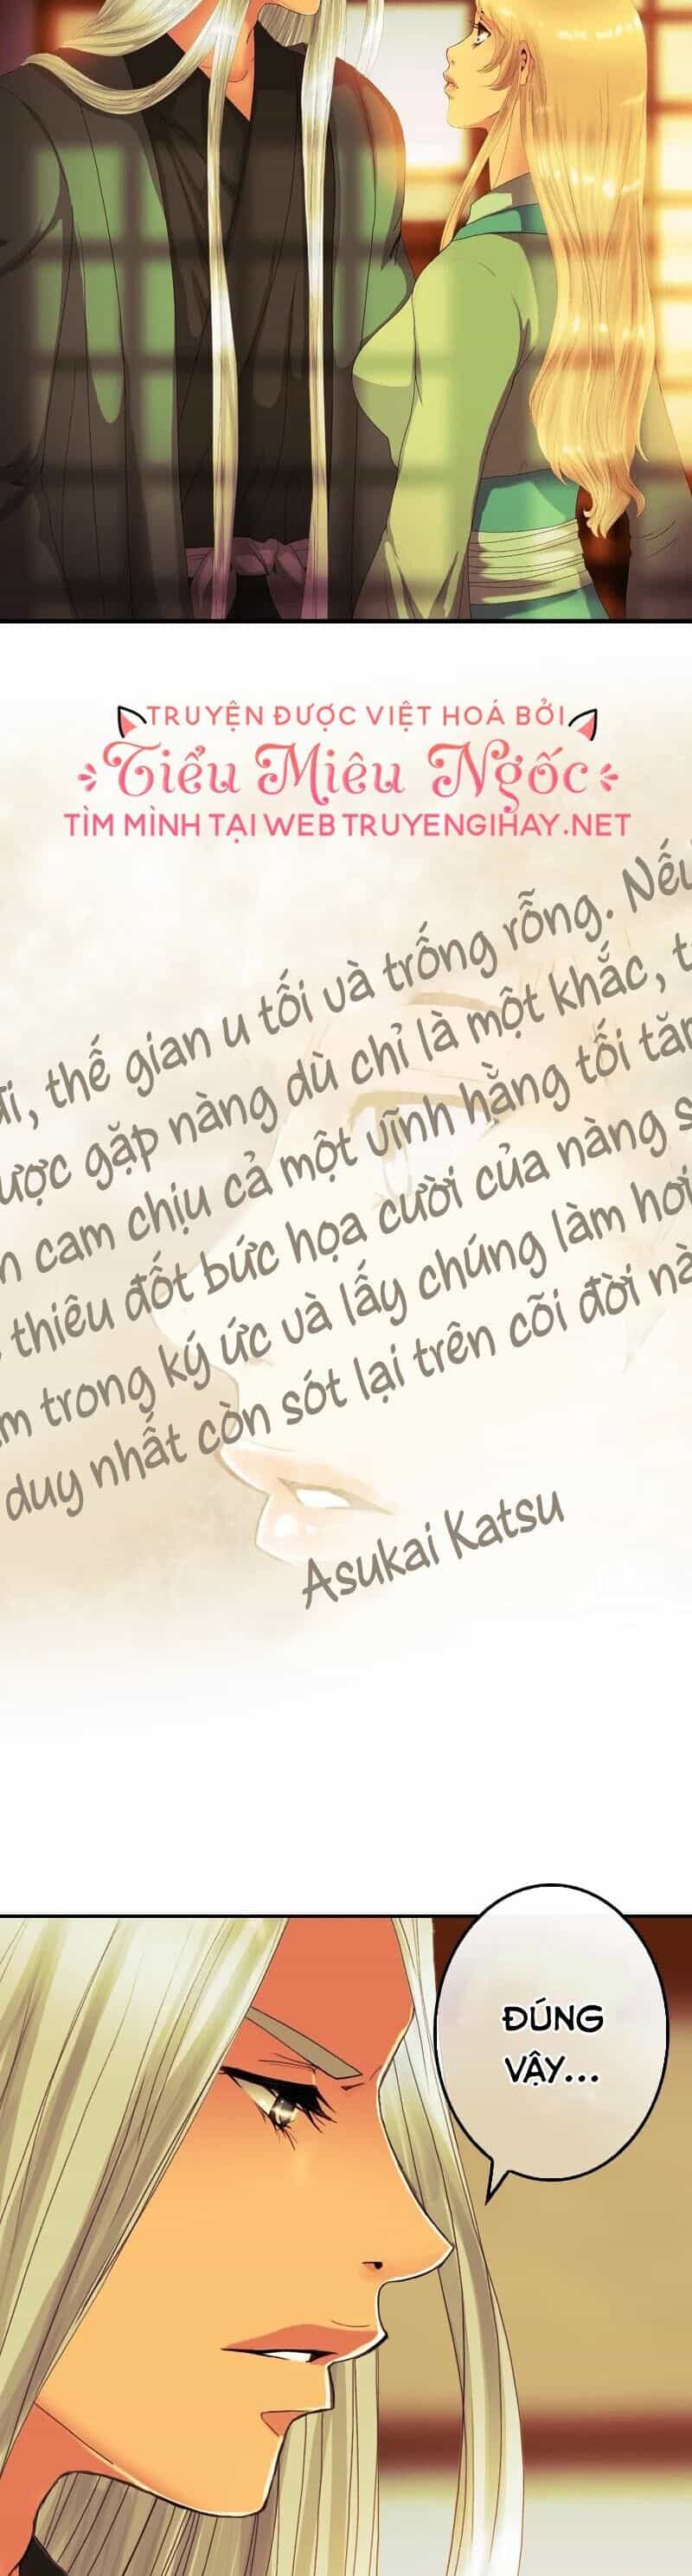 TRUYỆN ĐƯỢC VIỆT HOÁ BỞI
Tiểu Miêu Ngốc
TÌM MÌNH TẠI WEB TRUYENGIHAY.NET
thế gian u tối và trống rỗng. Nếu
gặp nàng dù chỉ là một khắc,
cam chịu cả một vĩnh hằng tối
thiêu đốt bức họa cười của nàng
trong ký ức và lấy chúng làm hơi
duy nhất còn sót lại trên cõi đời
Asukai Katsu
ĐÚNG
VẬY...